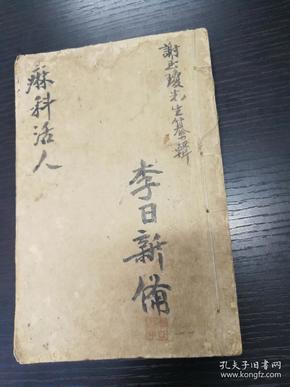 謝玉瓊先生纂輯
麻科活人
李日新備
孔夫子旧书网